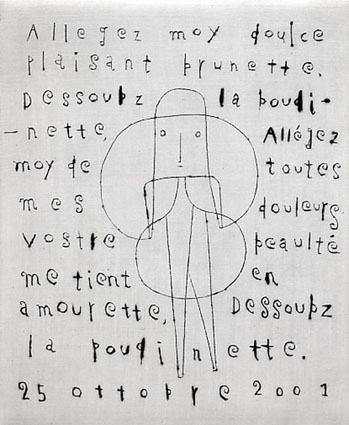 Allegez moy doulce
plaisant brunette.
Dessoubz la boudi-
-nette, Allégez
moy de toutes
mes douleurs.
vostre beaulté
me tient en
amourette, Dessoubz
la boudinette.
25 ottobre 2001